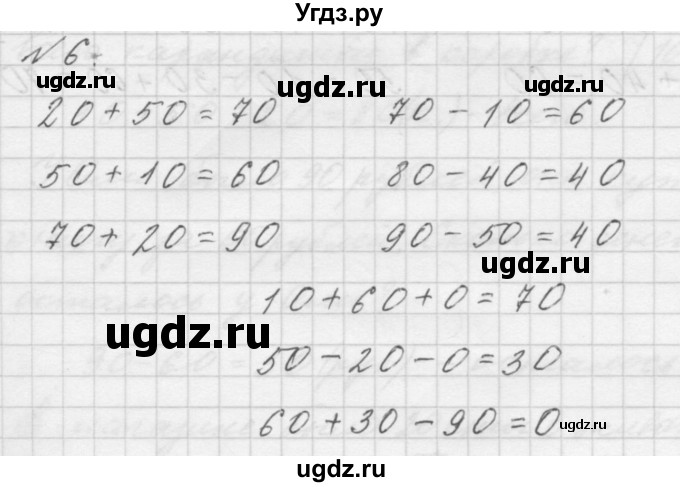 Угдз.ру
№ 6.
ugdz.ru ugdz.ru ugdz.ru
20 + 50 = 70 70 - 10 = 60
50 + 10 = 60 80 - 40 = 40
70 + 20 = 90 90 - 50 = 40
ugdz.ru
10 + 60 + 0 = 70
ugdz.ru
50 - 20 - 0 = 30
60 + 30 - 90 = 0
ugdz.ru
ugdz.ru